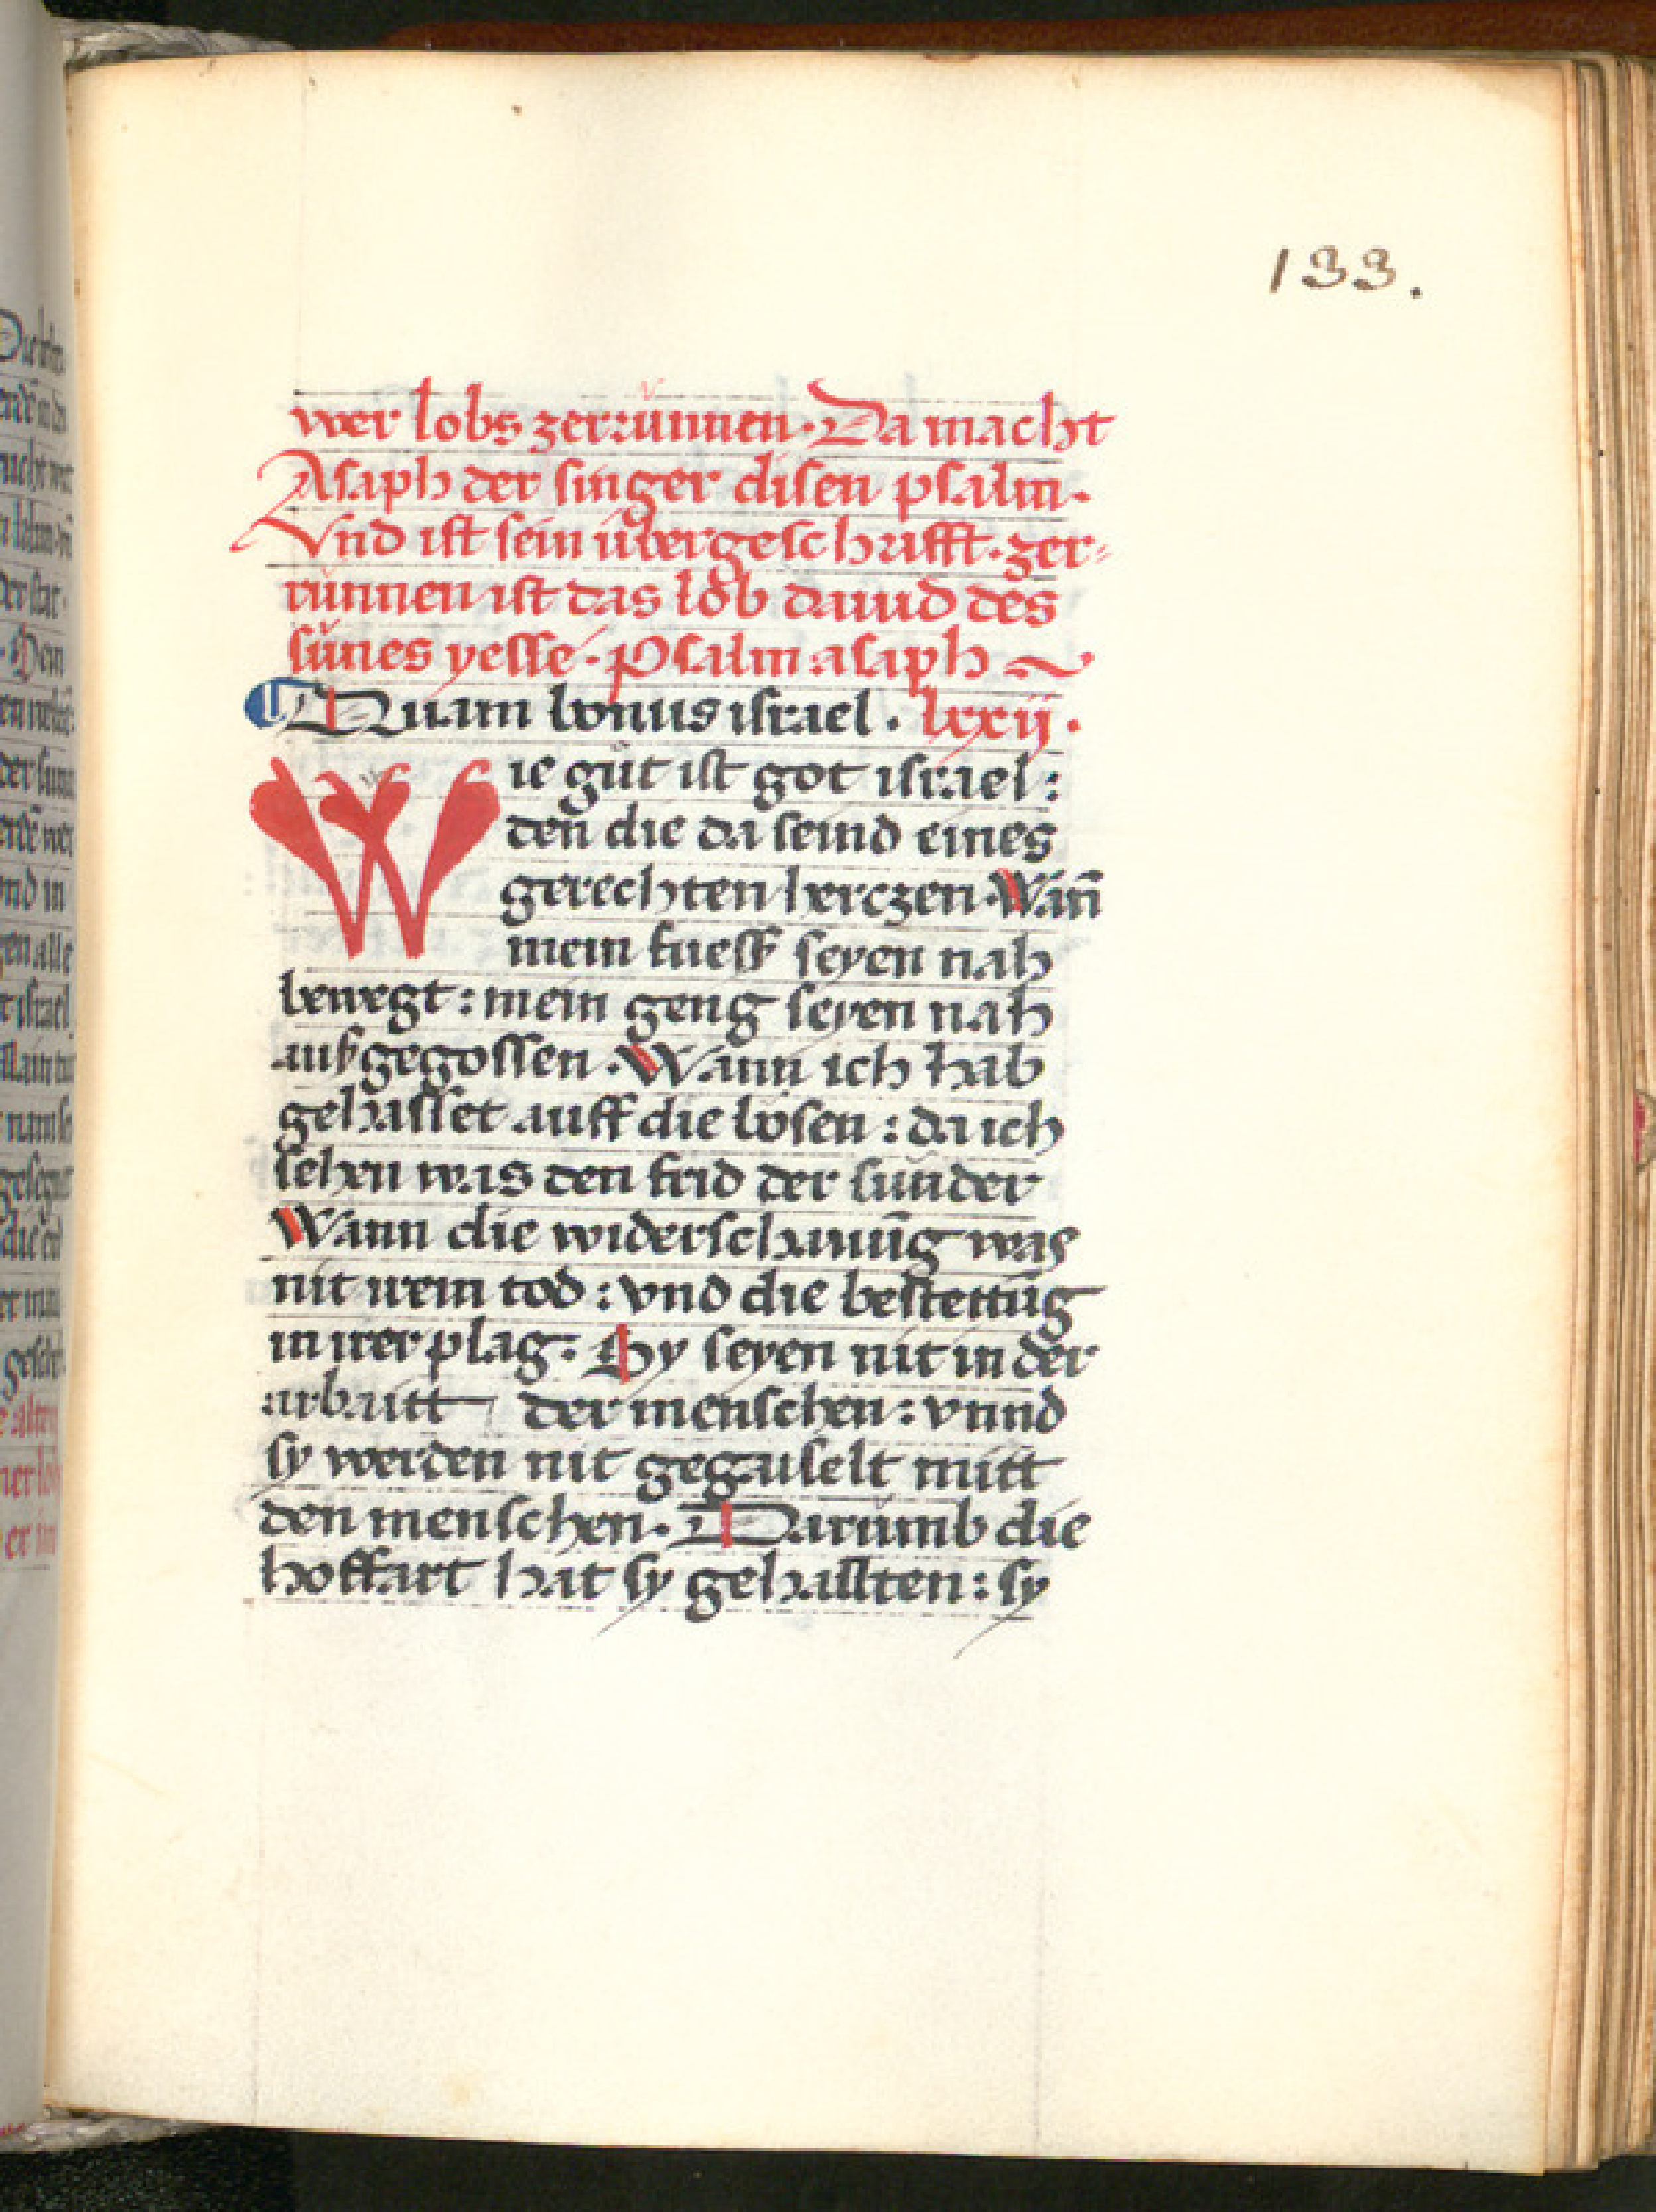 133.
wer lobs zerrünnen. Da macht
Asaph der singer disen psalm.
Vnd ist sein übergeschrifft. zer-
rünnen ist das lob dauid des
sünes yesse. Psalm asaph
Quam bonus israel. lxxij.
Wie güt ist got israel:
den̄ die da seind eines
gerechten herczen. Wan̄
mein fuess seyen nah
bewegt: mein geng seyen nah
außgegossen. Wann ich hab
gehasset auff die bösen: da ich
sehen was den frid der sünder
Wann die widerschauūg was
nit irem tod: vnd die bestettūg
in irer plag: Sy seyen nit in der
arbaitt der menschen: vnnd
sy werden nit gegaiselt mitt
den menschen. Darümb die
hoffart hat sy gehallten: sy